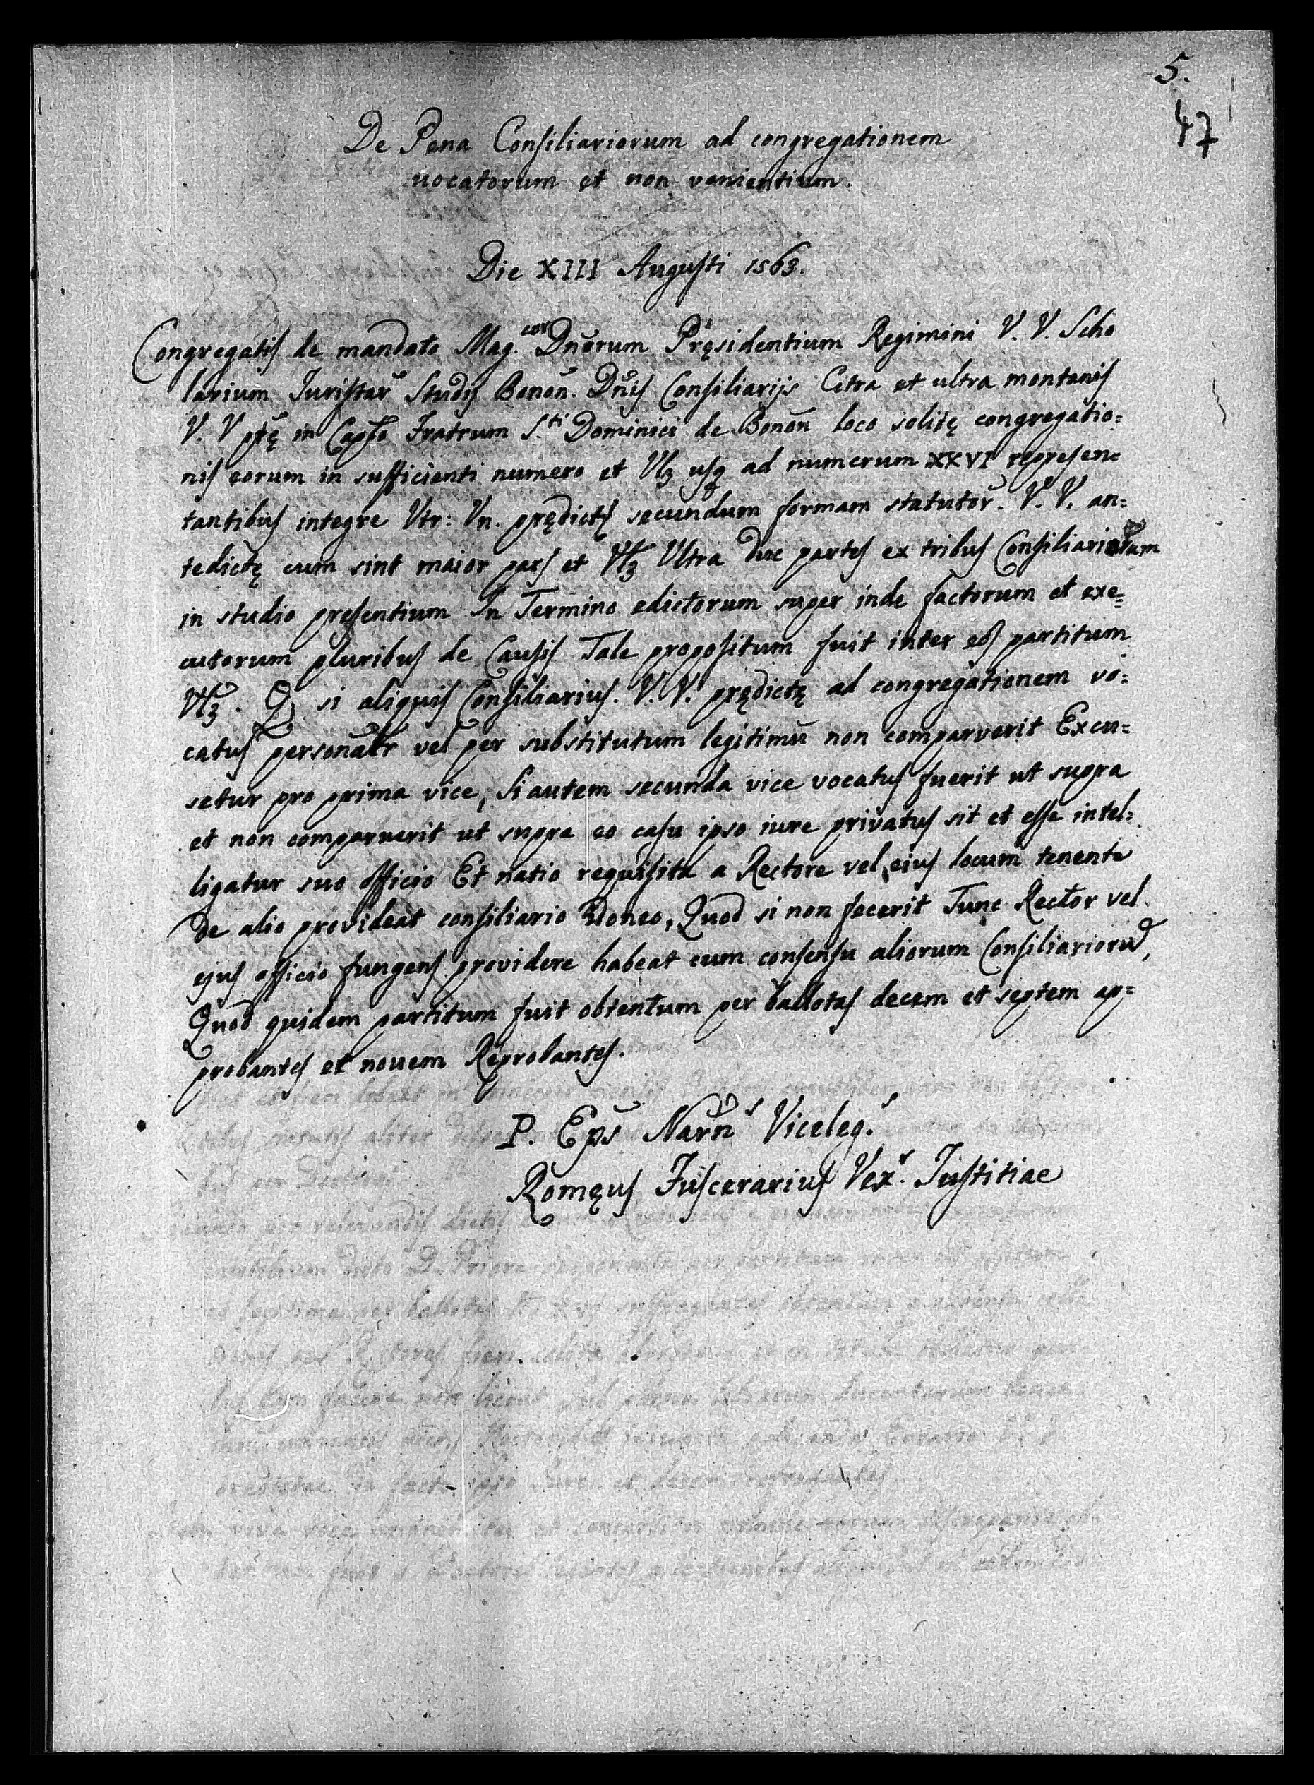 5.
47
De Pena Consiliariorum ad congregationem
uocatorum et non venientium.
Die XIII Augusti 1563.
Congregatis de mandato Mag.cor Dnorum Pręsidentium Regimini V. V. Scho
larium Juristar Studij Bonon. Dnis Consiliarijs Citra et ultra montanis
V. V. ptę in Capło Fratrum S.ti Dominici de Bonon loco solitę congregatio=
nis eorum in sufficienti numero et Vlȝ usq ad numerum XXVI represen=
tantibus integre Vtr: Vn. prędictę secundum formam statutor. V. V. an=
tedictę cum sint maior pars et Vlȝ Ultra due partes ex tribus Consiliariorum
in studio presentium In Termino edictorum super inde factorum et exe=
cutorum pluribus de Causis Tale propositum fuit inter eos partitum
Vlȝ. Q si aliquis Consiliarius. V. V. prędictę ad congregationem vo=
catus personalr vel per substitutum legitimū non comparuerit Excu=
setur pro prima vice, Si autem secunda vice vocatus fuerit ut supra
et non comparuerit ut supra eo casu ipso iure privatus sit et esse intel=
ligatur suo officio Et natio requisita a Rectore vel eius locum tenente
De alio provideat consiliario idoneo, Quod si non fecerit Tunc Rector vel
ejus officio fungens providere habeat cum consensu aliorum Consiliariorū,
Quod quidem partitum fuit obtentum per ballotas decem et septem ap=
probantes et nouem Reprobantes.
P. Eps Narn.s Viceleg.s
Romęus Fuscerarius Vex.r Justitiae